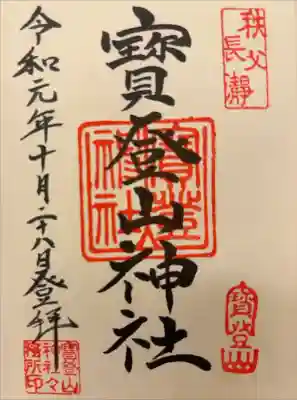 秩父
長瀞
寶登山神社
寶登山神社
寶登山
令和元年十月二十八日登拝
寶登山
神社々
務所印